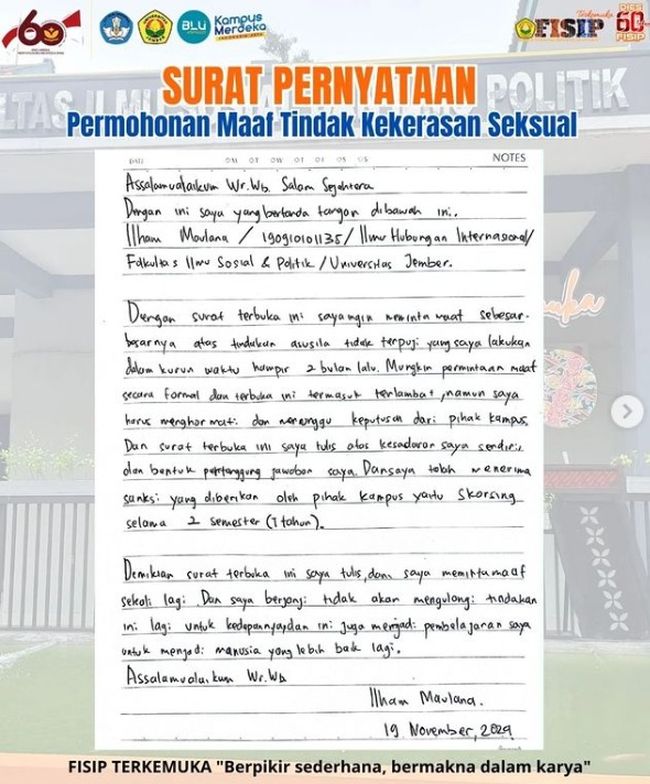 60
BLU
Kampus
Merdeka
INDONESIA JAYA
Terkemuka
FISIP
DIES
60
FISIP
SURAT PERNYATAAN
LTAS ILMU SOSIAL POLITIK
Permohonan Maaf Tindak Kekerasan Seksual
DATE
NOTES
Assalamualaikum Wr.Wb. Salam Sejahtera
Dengan ini saya yang bertanda tangan dibawah ini.
Ilham Maulana / 190910101135 / Ilmu Hubungan Internasional/
Fakultas Ilmu Sosial & Politik / Universitas Jember.
Dengan surat terbuka ini saya ingin meminta maaf sebesar-
besarnya atas tindakan asusila tidak terpuji yang saya lakukan
dalam kurun waktu hampir 2 bulan lalu. Mungkin permintaan maaf
secara formal dan terbuka ini termasuk terlambat, namun saya
harus menghormati dan menunggu keputusan dari pihak kampus.
Dan surat terbuka ini saya tulis atas kesadaran saya sendiri,
dan bentuk pertanggung jawaban saya. Dan saya telah menerima
sanksi yang diberikan oleh pihak kampus yaitu Skorsing
selama 2 semester (1 tahun).
Demikian surat terbuka ini saya tulis, dan saya meminta maaf
sekali lagi. Dan saya berjanji tidak akan mengulangi tindakan
ini lagi untuk kedepannya dan ini juga menjadi pembelajaran saya
untuk menjadi manusia yang lebih baik lagi.
Assalamualaikum Wr.Wb
Ilham Maulana.
19 November, 2024
FISIP TERKEMUKA "Berpikir sederhana, bermakna dalam karya"